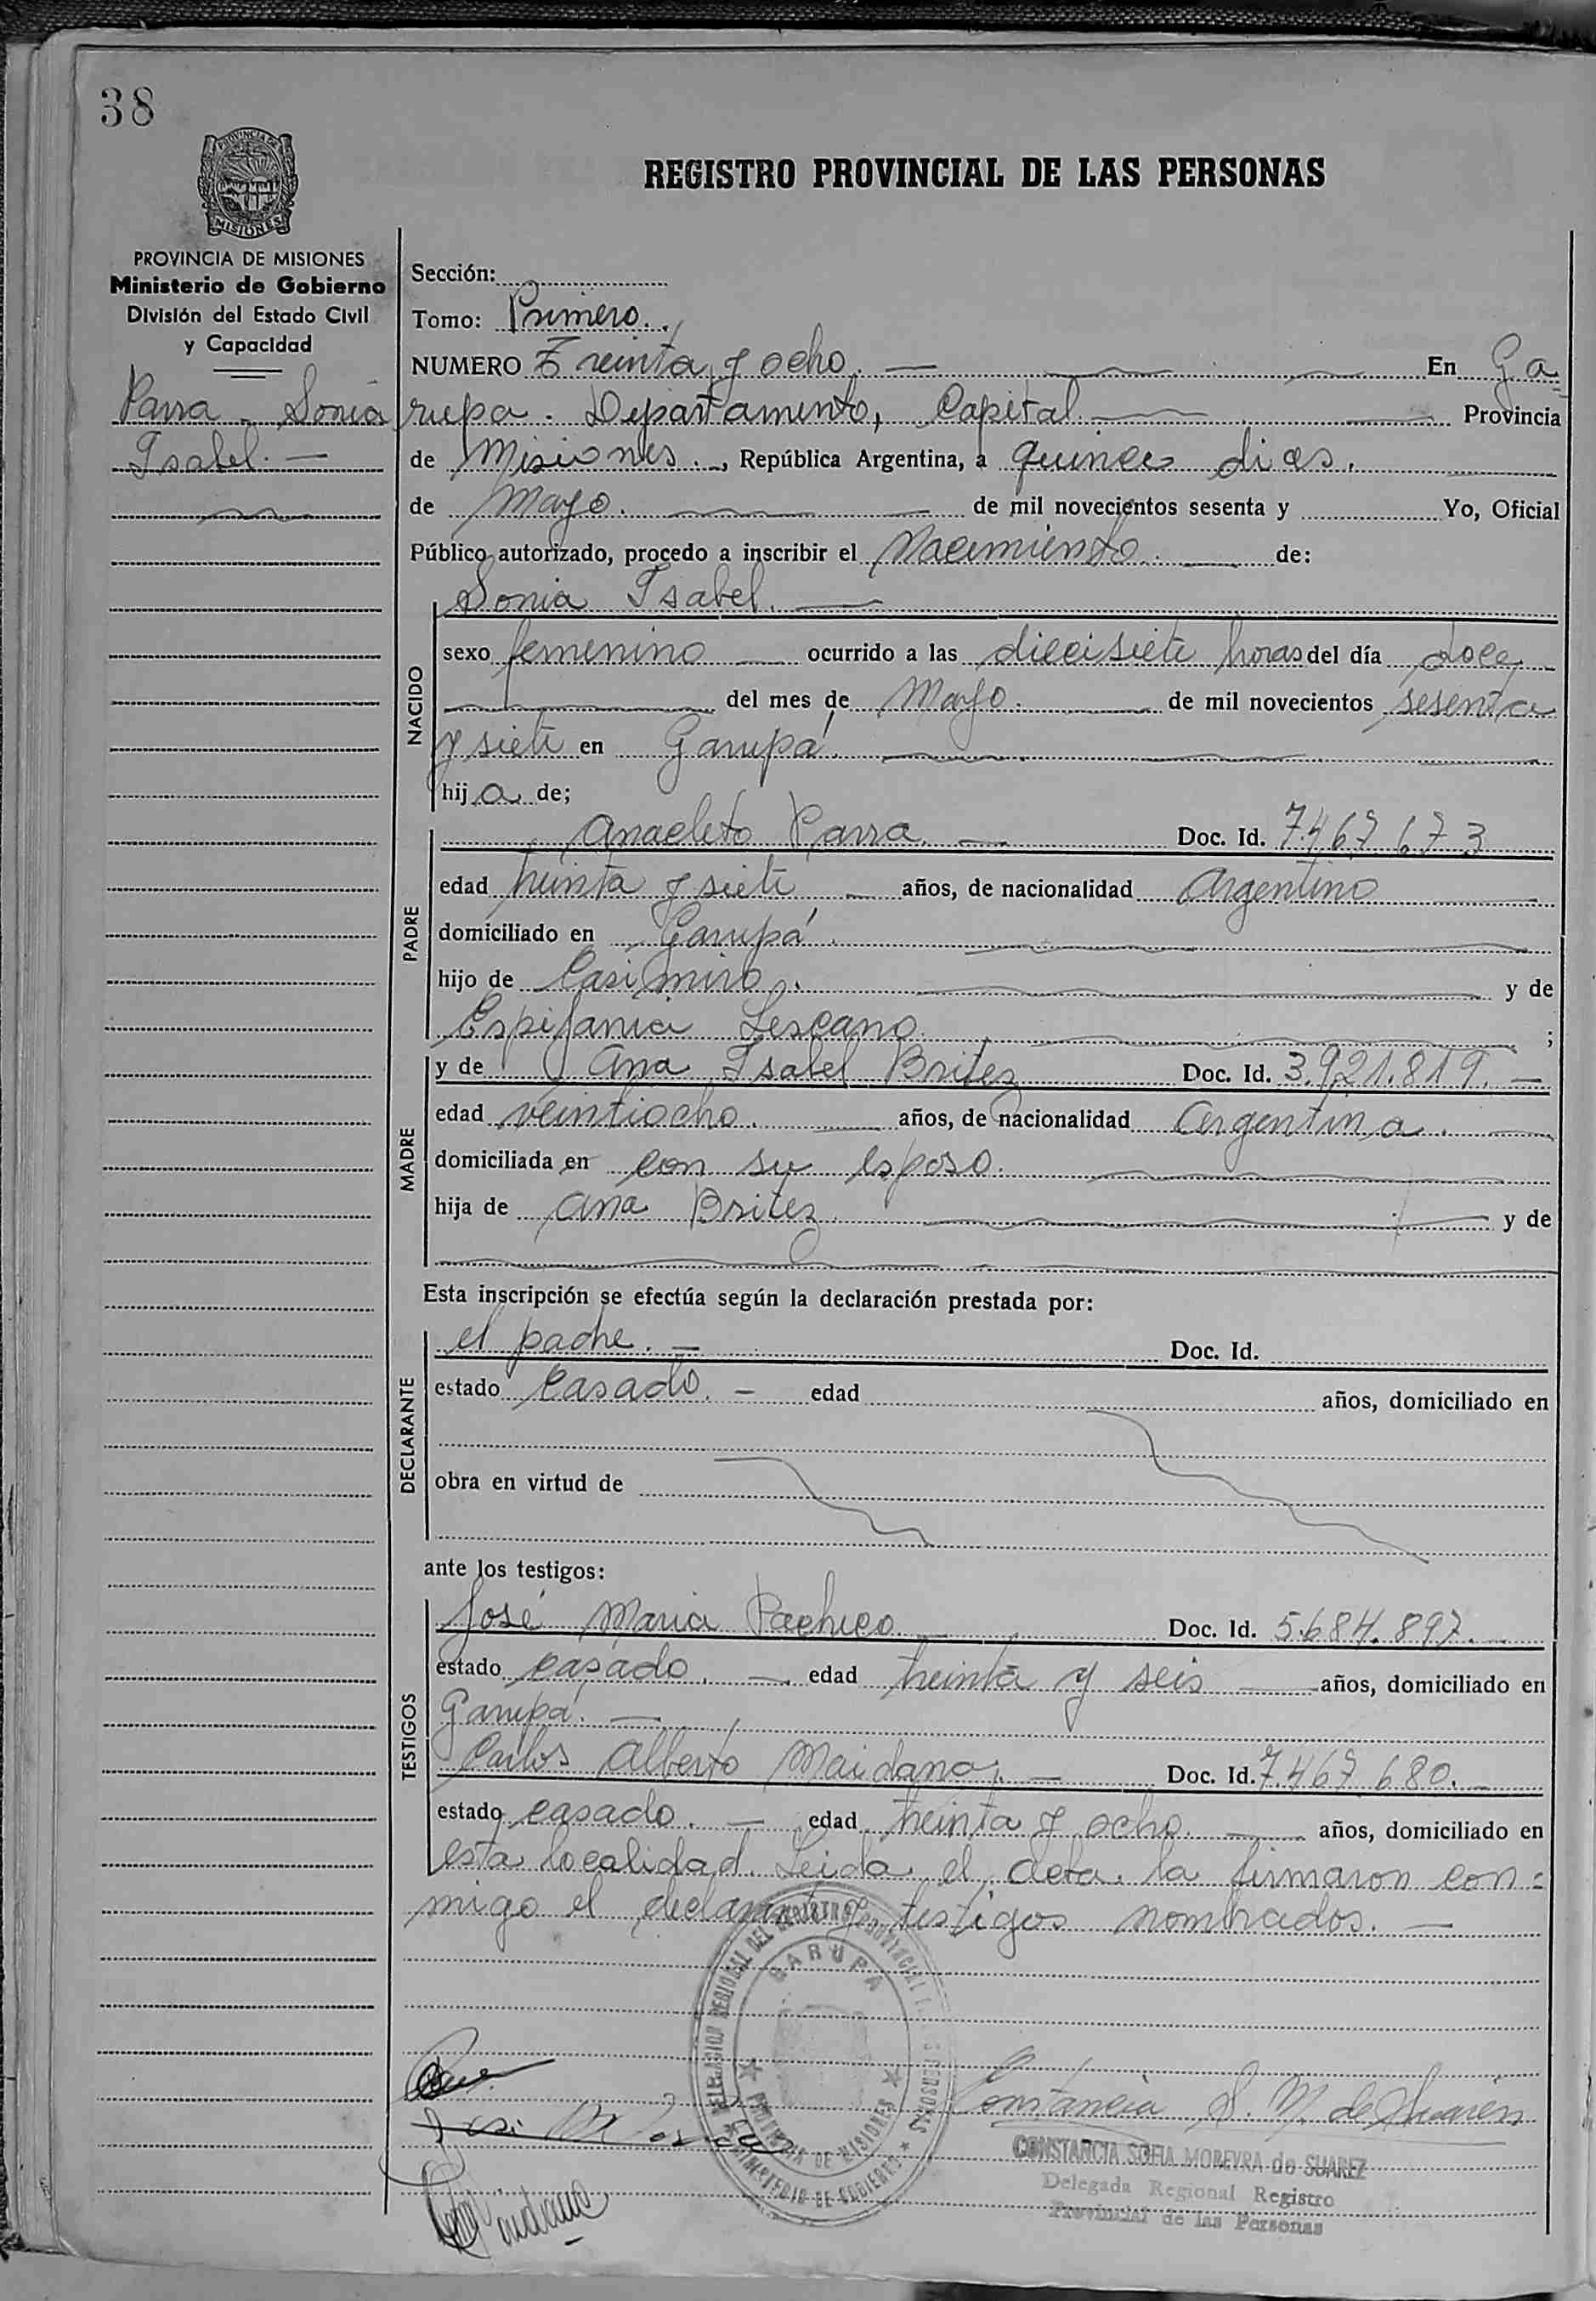 38
PROVINCIA DE
MISIONES
REGISTRO PROVINCIAL DE LAS PERSONAS
PROVINCIA DE MISIONES
Ministerio de Gobierno
División del Estado Civil
y Capacidad
Parra - Sonia
Isabel. —
Sección:
Tomo: Primero.
NUMERO Treinta y ocho. — En Ga
rupa. Departamento, Capital. — Provincia
de Misiones., República Argentina, a quince dias.
de Mayo. — de mil novecientos sesenta y Yo, Oficial
Público autorizado, procedo a inscribir el Nacimiento. — de:
Sonia Isabel. —
NACIDO
sexo femenino — ocurrido a las diecisiete horas del día doce,
del mes de Mayo. — de mil novecientos sesenta
y siete en Garupá.
hija de;
PADRE
Anacleto Parra. — Doc. Id. 7.467.673
edad treinta y siete — años, de nacionalidad Argentino
domiciliado en Garupá.
hijo de Casimiro. y de
Espifania Lescano. ;
MADRE
y de Ana Isabel Britez Doc. Id. 3.921.819. —
edad veintiocho. — años, de nacionalidad Argentina. —
domiciliada en con su esposo.
hija de Ana Britez y de
Esta inscripción se efectúa según la declaración prestada por:
DECLARANTE
el padre. — Doc. Id.
estado Casado. — edad años, domiciliado en
obra en virtud de
ante los testigos:
TESTIGOS
José Maria Pacheco — Doc. Id. 5.684.897. —
estado casado. — edad treinta y seis — años, domiciliado en
Garupá. —
Carlos Alberto Maidana. — Doc. Id. 7.467.680. —
estado casado. — edad treinta y ocho. — años, domiciliado en
esta localidad. Leida el acta. la firmaron con=
migo el declarante y testigos nombrados. —
DELEGACION REGIONAL DEL REGISTRO PROVINCIAL DE LAS PERSONAS
GARUPA
PROVINCIA DE MISIONES
MINISTERIO DE GOBIERNO
Constancia S. M. de Suarez
CONSTANCIA SOFIA MOREYRA de SUAREZ
Delegada Regional Registro
Provincial de las Personas